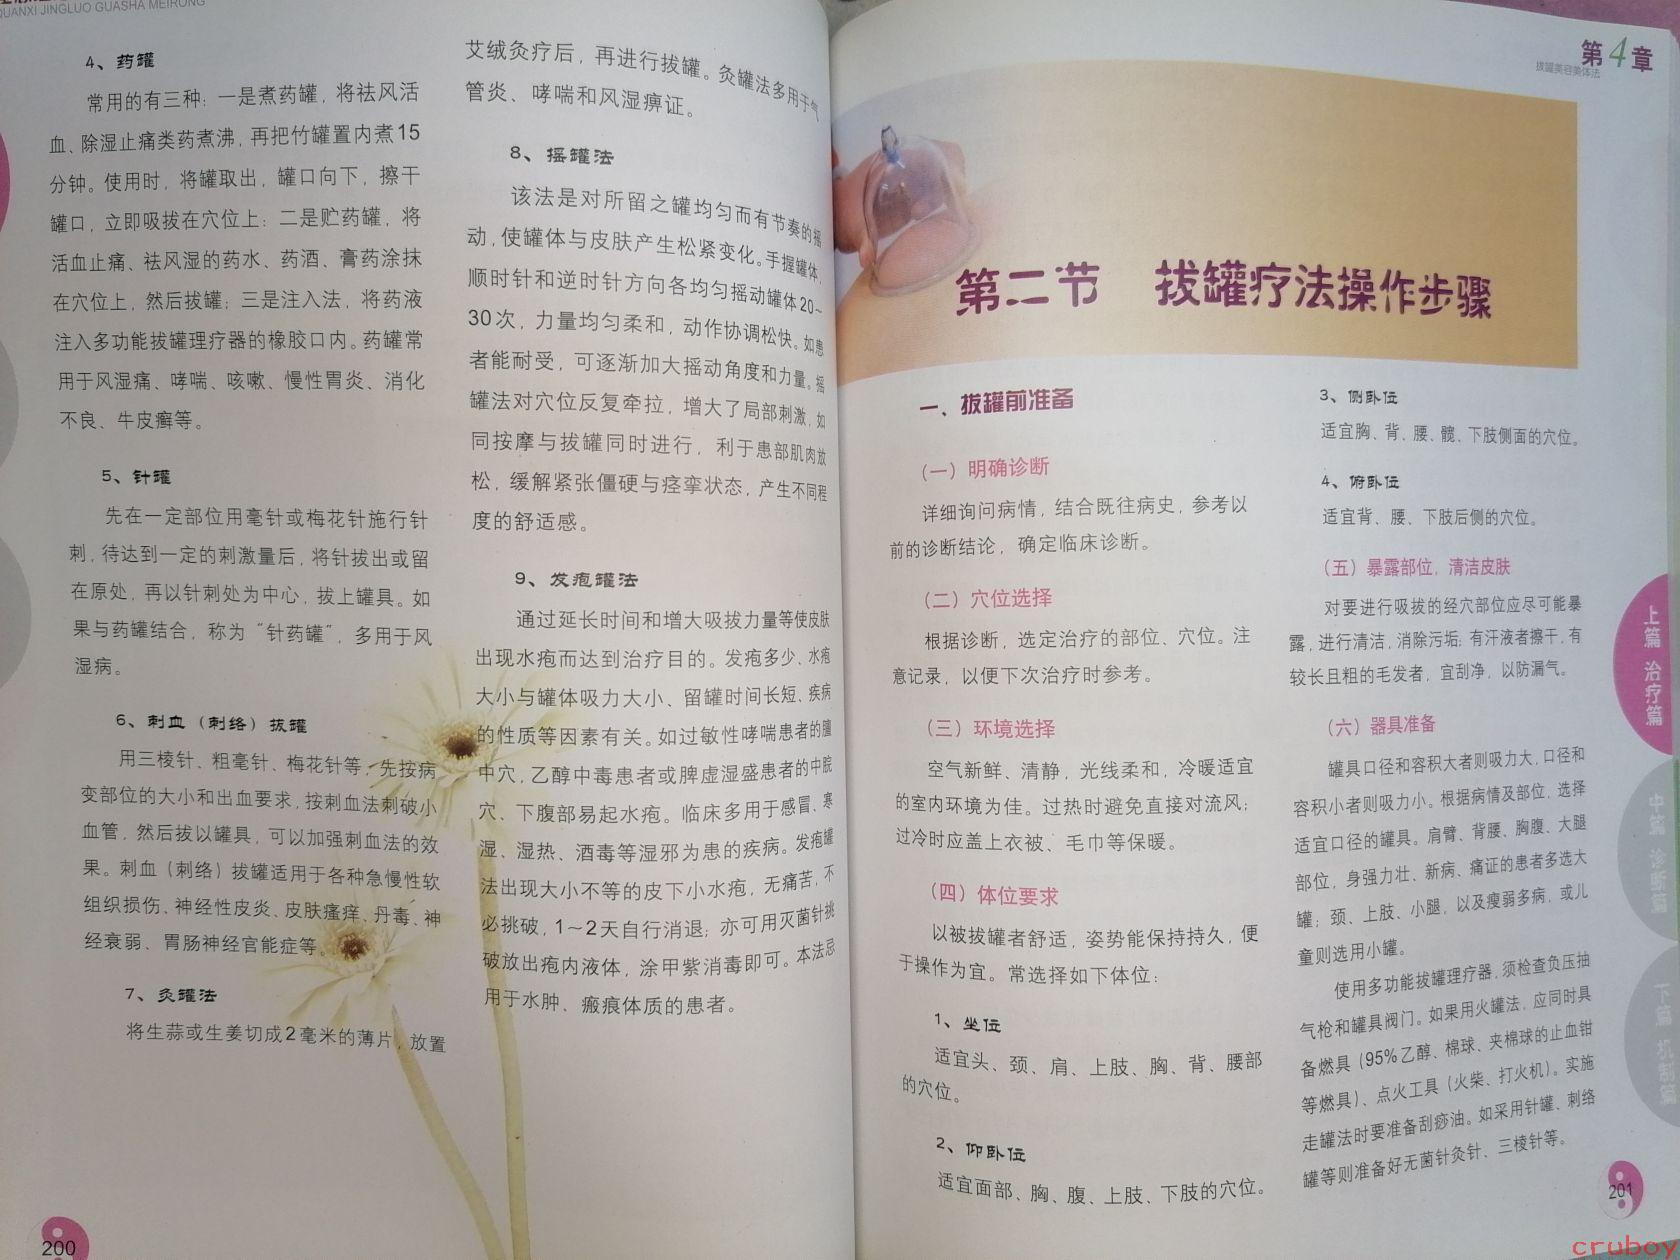 QUANXI JINGLUO GUASHA MEIRONG
4、药罐
常用的有三种：一是煮药罐，将祛风活
血、除湿止痛类药煮沸，再把竹罐置内煮15
分钟。使用时，将罐取出，罐口向下，擦干
罐口，立即吸拔在穴位上；二是贮药罐，将
活血止痛、祛风湿的药水、药酒、膏药涂抹
在穴位上，然后拔罐；三是注入法，将药液
注入多功能拔罐理疗器的橡胶口内。药罐常
用于风湿痛、哮喘、咳嗽、慢性胃炎、消化
不良、牛皮癣等。
5、针罐
先在一定部位用毫针或梅花针施行针
刺，待达到一定的刺激量后，将针拔出或留
在原处，再以针刺处为中心，拔上罐具。如
果与药罐结合，称为“针药罐”，多用于风
湿病。
6、刺血（刺络）拔罐
用三棱针、粗毫针、梅花针等，先按病
变部位的大小和出血要求，按刺血法刺破小
血管，然后拔以罐具，可以加强刺血法的效
果。刺血（刺络）拔罐适用于各种急慢性软
组织损伤、神经性皮炎、皮肤瘙痒、丹毒、神
经衰弱、胃肠神经官能症等。
7、灸罐法
将生蒜或生姜切成2毫米的薄片，放置
200
艾绒灸疗后，再进行拔罐。灸罐法多用于气
管炎、哮喘和风湿痹证。
8、摇罐法
该法是对所留之罐均匀而有节奏的摇
动，使罐体与皮肤产生松紧变化。手握罐体，
顺时针和逆时针方向各均匀摇动罐体20~
30次，力量均匀柔和，动作协调松快。如患
者能耐受，可逐渐加大摇动角度和力量。摇
罐法对穴位反复牵拉，增大了局部刺激，如
同按摩与拔罐同时进行，利于患部肌肉放
松，缓解紧张僵硬与痉挛状态，产生不同程
度的舒适感。
9、发疱罐法
通过延长时间和增大吸拔力量等使皮肤
出现水疱而达到治疗目的。发疱多少、水疱
大小与罐体吸力大小、留罐时间长短、疾病
的性质等因素有关。如过敏性哮喘患者的膻
中穴，乙醇中毒患者或脾虚湿盛患者的中脘
穴、下腹部易起水疱。临床多用于感冒、寒
湿、湿热、酒毒等湿邪为患的疾病。发疱罐
法出现大小不等的皮下小水疱，无痛苦，不
必挑破，1~2天自行消退；亦可用灭菌针挑
破放出疱内液体，涂甲紫消毒即可。本法忌
用于水肿、瘢痕体质的患者。
第4章
拔罐美容美体法
第二节 拔罐疗法操作步骤
一、拔罐前准备
（一）明确诊断
详细询问病情，结合既往病史，参考以
前的诊断结论，确定临床诊断。
（二）穴位选择
根据诊断，选定治疗的部位、穴位。注
意记录，以便下次治疗时参考。
（三）环境选择
空气新鲜、清静，光线柔和，冷暖适宜
的室内环境为佳。过热时避免直接对流风；
过冷时应盖上衣被、毛巾等保暖。
（四）体位要求
以被拔罐者舒适，姿势能保持持久，便
于操作为宜。常选择如下体位：
1、坐位
适宜头、颈、肩、上肢、胸、背、腰部
的穴位。
2、仰卧位
适宜面部、胸、腹、上肢、下肢的穴位。
3、侧卧位
适宜胸、背、腰、髋、下肢侧面的穴位。
4、俯卧位
适宜背、腰、下肢后侧的穴位。
（五）暴露部位，清洁皮肤
对要进行吸拔的经穴部位应尽可能暴
露，进行清洁，消除污垢；有汗液者擦干，有
较长且粗的毛发者，宜刮净，以防漏气。
（六）器具准备
罐具口径和容积大者则吸力大，口径和
容积小者则吸力小。根据病情及部位，选择
适宜口径的罐具。肩臂、背腰、胸腹、大腿
部位，身强力壮、新病、痛证的患者多选大
罐；颈、上肢、小腿，以及瘦弱多病，或儿
童则选用小罐。
使用多功能拔罐理疗器，须检查负压抽
气枪和罐具阀门。如果用火罐法，应同时具
备燃具（95%乙醇、棉球、夹棉球的止血钳
等燃具）、点火工具（火柴、打火机）。实施
走罐法时要准备刮痧油。如采用针罐、刺络
罐等则准备好无菌针灸针、三棱针等。
上篇 治疗篇
中篇 诊断篇
下篇 机制篇
201
cruboy